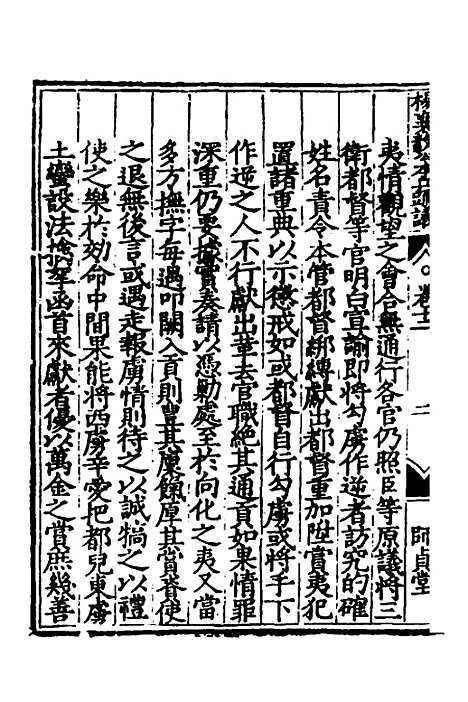 夷情觀望之會合無通行各官仍照臣等原議將三
衛都督等官明白宣諭即將勾虜作逆者訪究的確
姓名責令本管都督綁縛獻出都督重加陞賞夷犯
置諸重典以示懲戒如或都督自行勾虜或將手下
作逆之人不行獻出革去官職絕其通貢如果情罪
深重仍要據實奏請以憑勦處至於向化之夷又當
多方撫字每遇叩關入貢則豐其廩餼厚其賞賚使
之退無後言或遇走報虜情則待之以誠犒之以禮
使之樂於効命中間果能將西虜辛愛把都兒東虜
土蠻設法擒拏函首來獻者優以萬金之賞庶幾善
卷十二
二
師貞堂